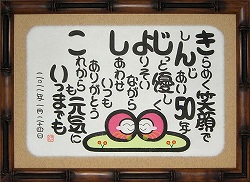 きらめく笑顔で
しんじあい50年
じっと優しく
よりそいながら
しあわせ
ありがとう
これからも元気に
いつまでも